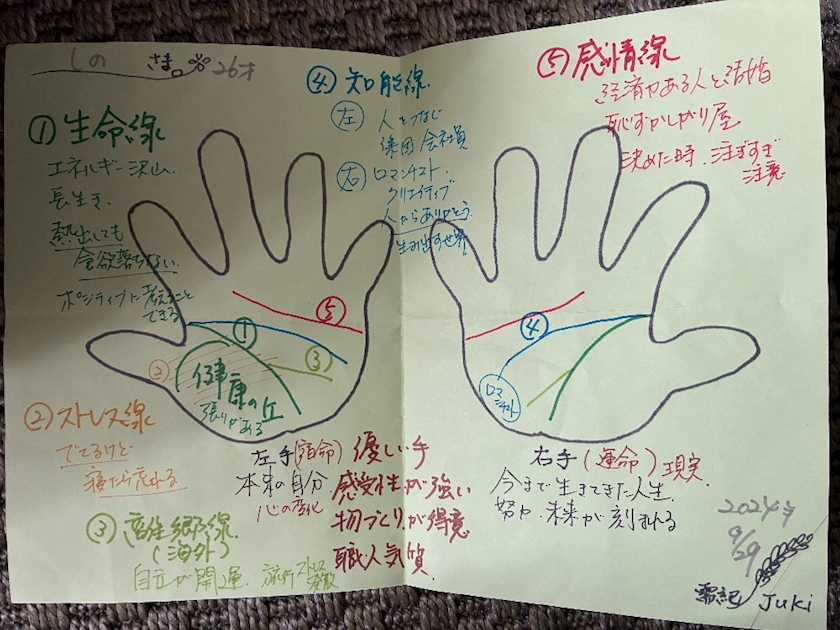 しの さま 26才
① 生命線
エネルギー沢山.
長生き.
熱出しても
食欲落ちない.
ポジティブに考えること
できる
② ストレス線
でてるけど
寝たら忘れる
③ 離住郷線
(海外)
自立が開運. 旅行 ストレス
④ 知能線
左 人とつなぐ
集団 会社員
右 ロマンチスト.
クリエイティブ
人からありがとう
生み出す世界
⑤ 感情線
経済力ある人と結婚
恥ずかしがり屋
決めた時、注ぎすぎ
注意
⑤
①
③
②
健康の丘
張りがある
④
ロマンチスト
左手(宿命) 優しい手
本来の自分 感受性が強い
心の変化 物づくりが得意
職人気質
右手(運命) 現実.
今まで生きてきた人生.
努力. 未来が刻まれる
2024年
9/29
Juki